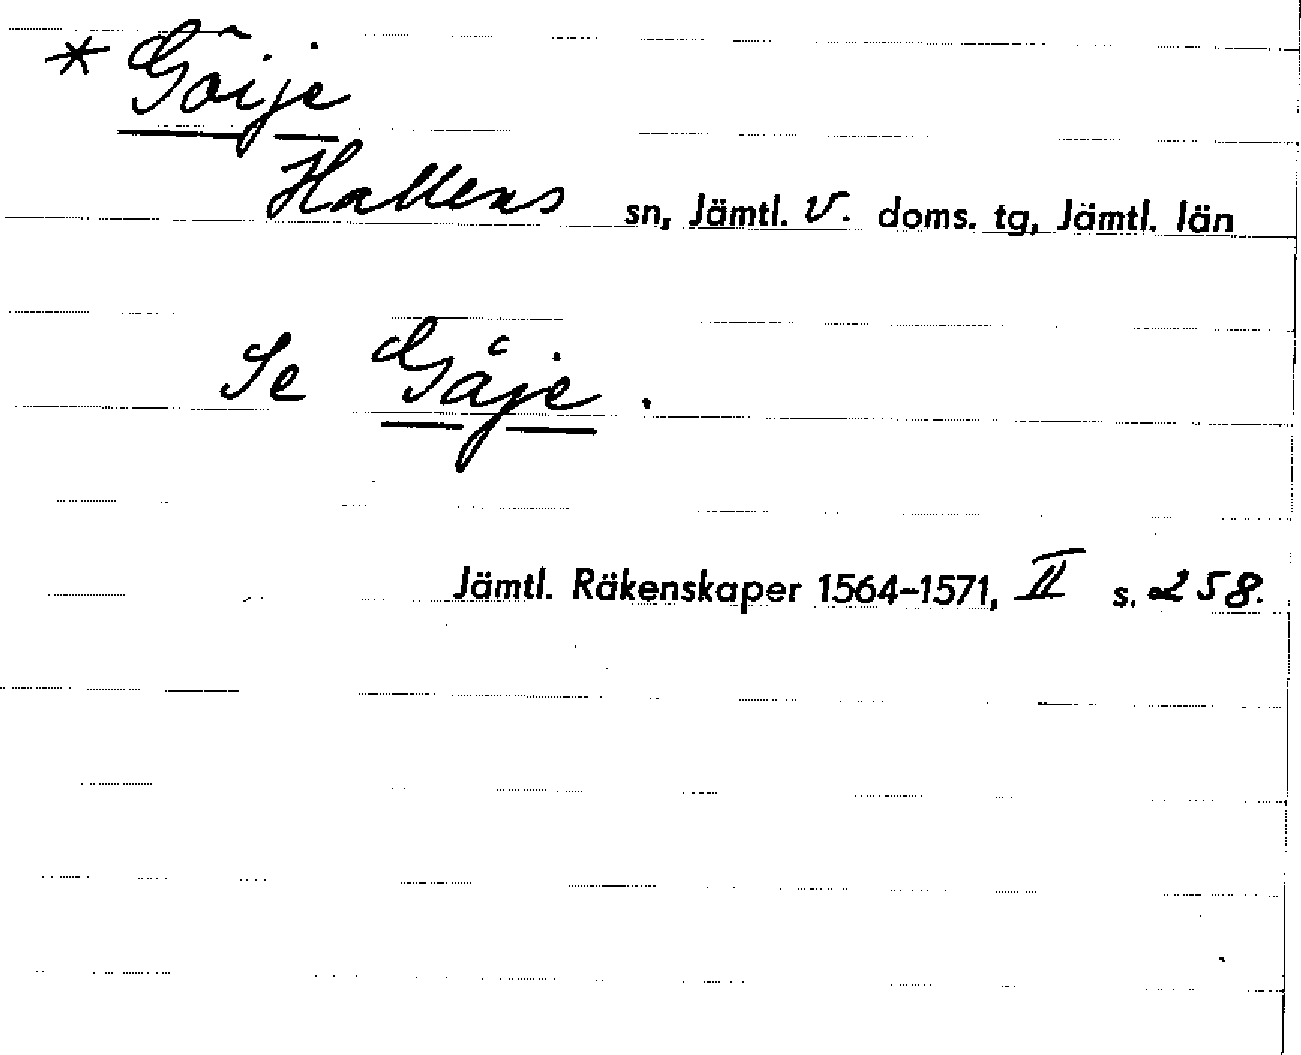 * Göije
Hallens sn, Jämtl. v. doms. tg, Jämtl. län
Se Gåje.
Jämtl. Räkenskaper 1564-1571, II s. 258.